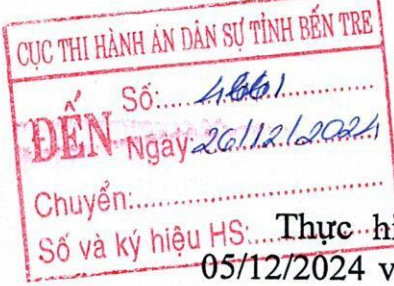 CỤC THI HÀNH ÁN DÂN SỰ TỈNH BẾN TRE
ĐẾN
Số:
Ngày: 26/12/2024
Chuyển:
Số và ký hiệu HS:
Thực hi
05/12/2024 v